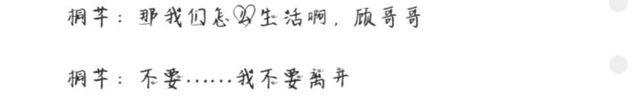 桐芊：那我们怎么生活啊，顾哥哥
桐芊：不要……我不要离开